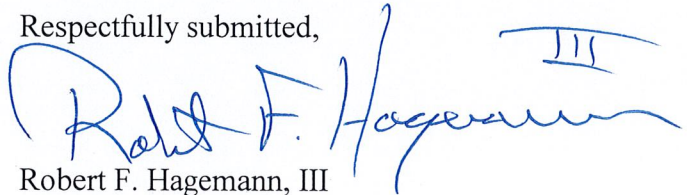 Respectfully submitted,
Robert F. Hagemann III
Robert F. Hagemann, III